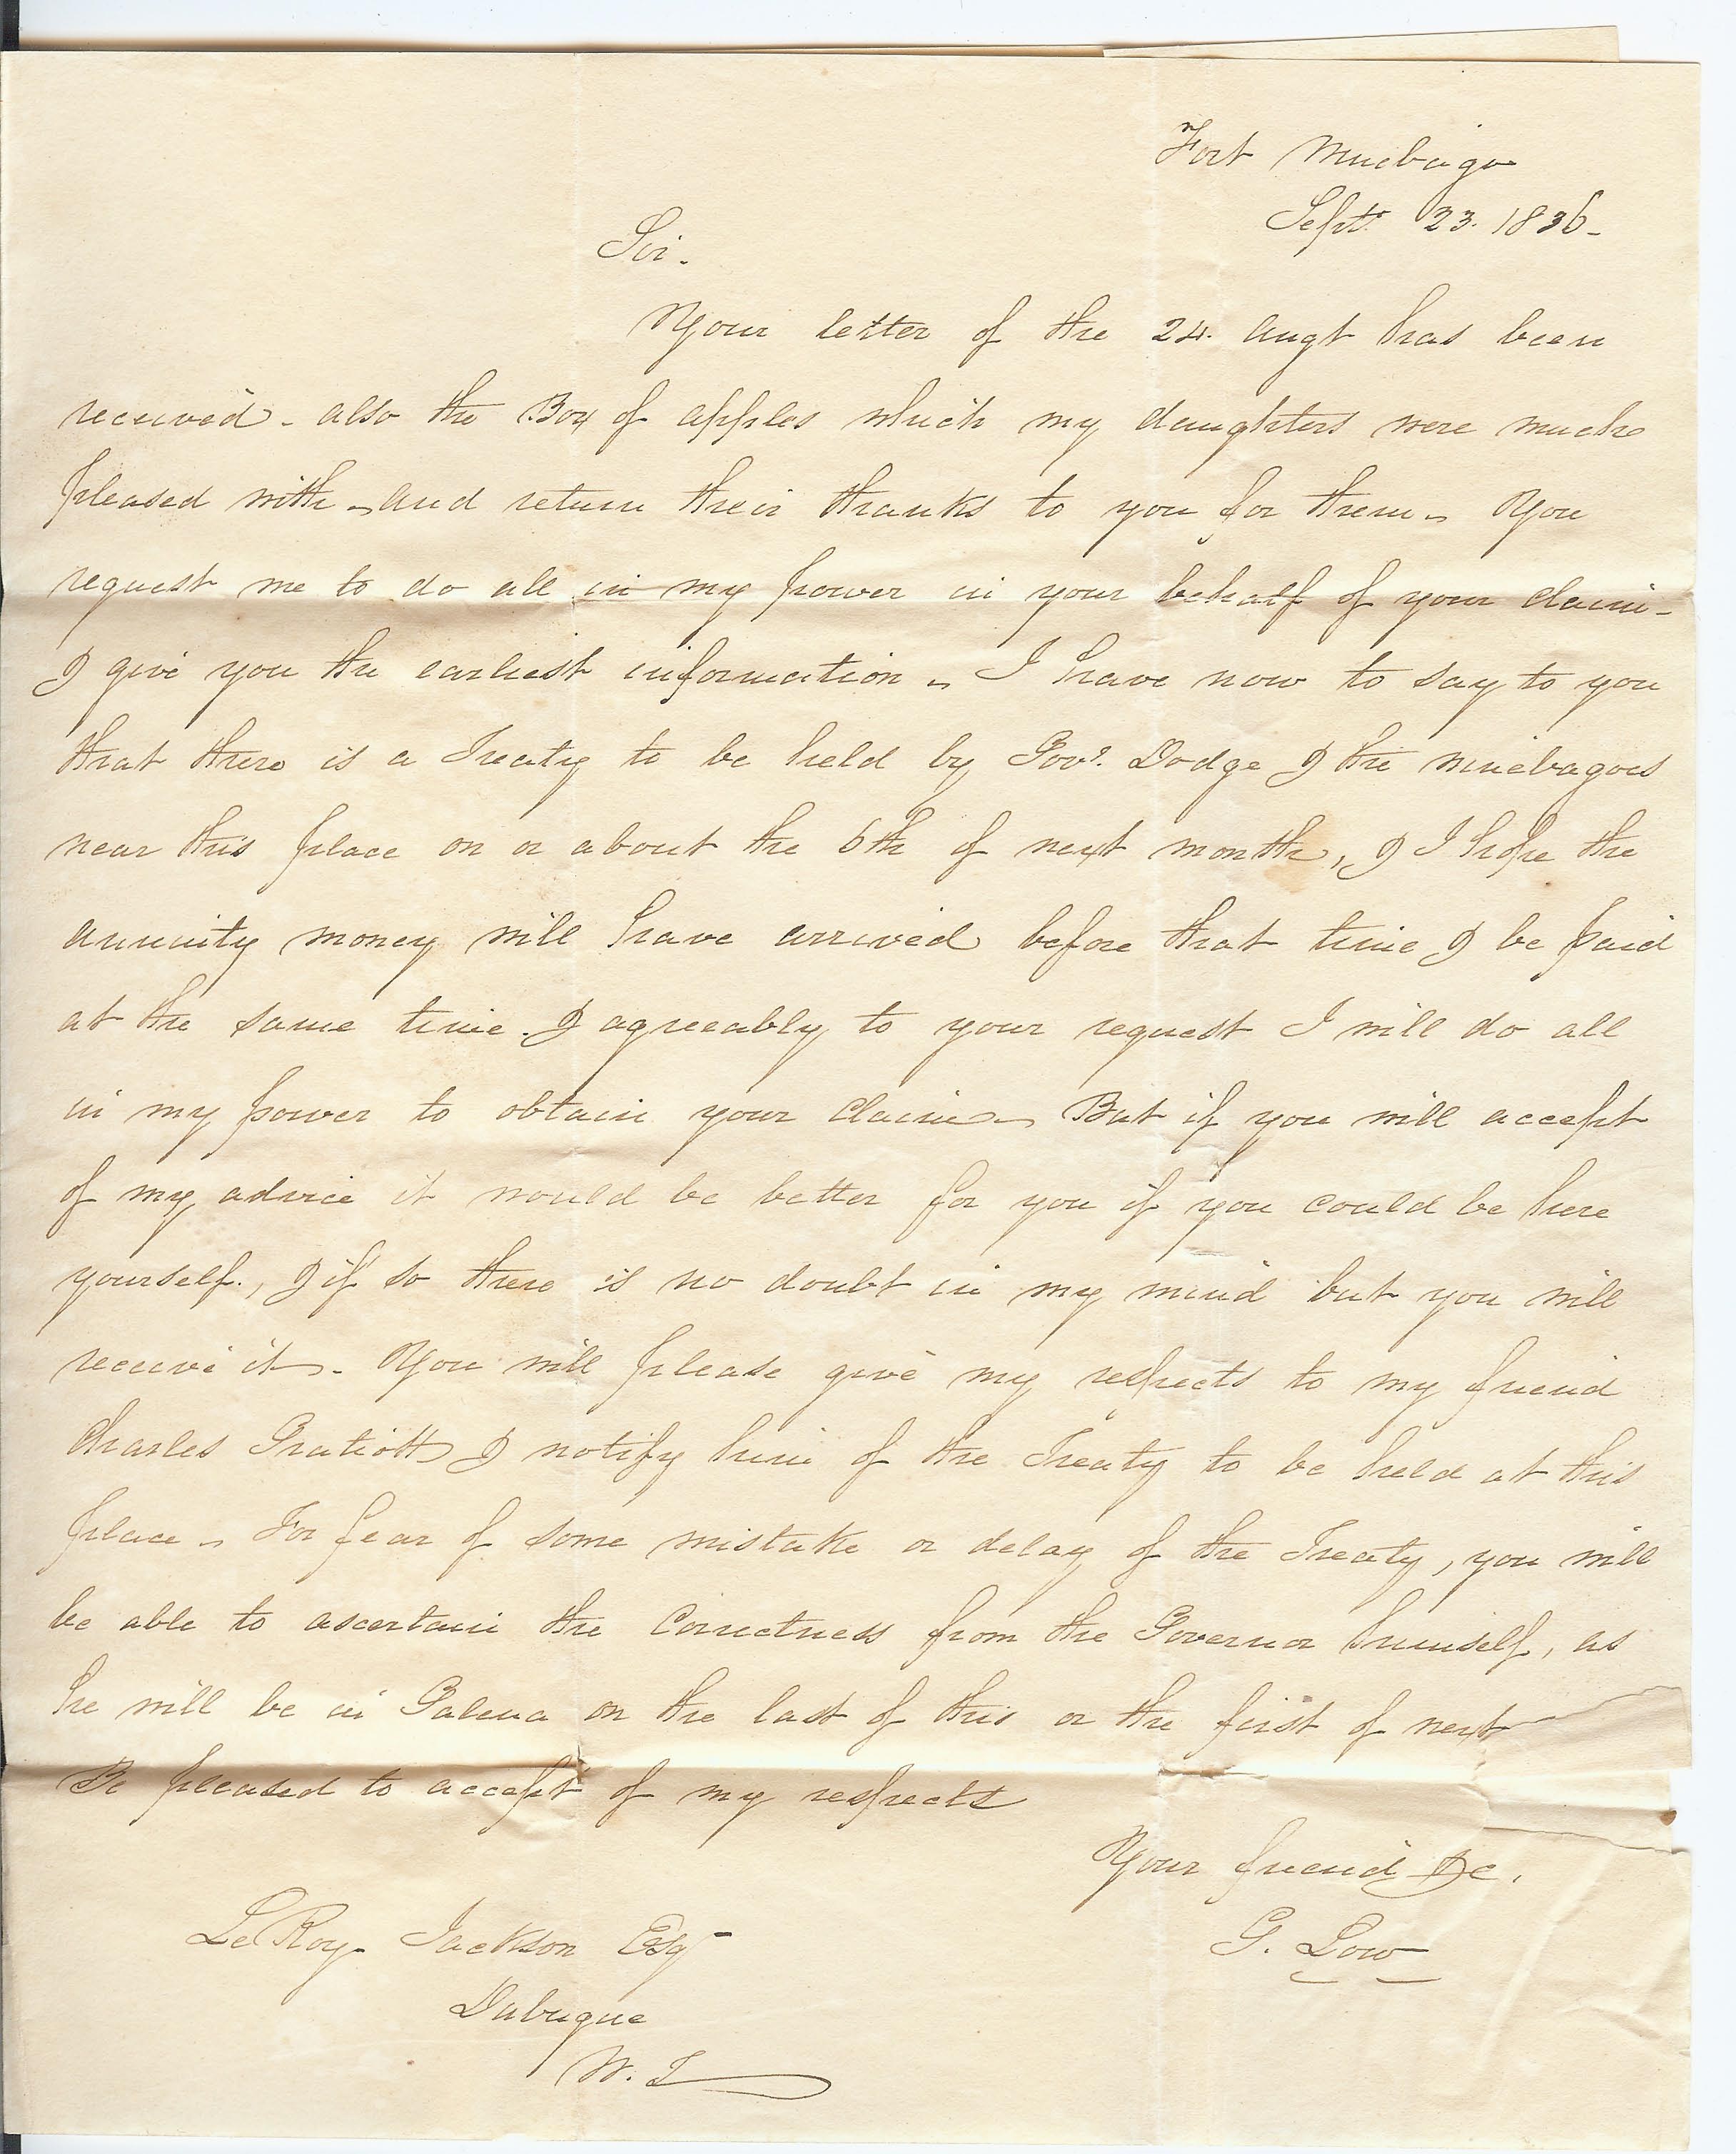 Fort Winebago
Sept. 23. 1836-
Sir.
Your letter of the 24. Augt has been
received - also the Box of apples which my daughters were much
pleased with - and return their thanks to you for them - You
request me to do all in my power in your behalf of your claim -
& give you the earliest information - I have now to say to you
that there is a Treaty to be held by Govr. Dodge & the winebagoes
near this place on or about the 6th of next month, & I hope the
annuity money will have arrived before that time & be paid
at the same time. & agreeably to your request I will do all
in my power to obtain your claim - But if you will accept
of my advice it would be better for you if you could be here
yourself., & if so there is no doubt in my mind but you will
receive it - You will please give my respects to my friend
Charles Gratiott & notify him of the Treaty to be held at this
place - For fear of some mistake or delay of the Treaty, you will
be able to ascertain the Correctness from the Governor himself, as
he will be in Galena on the last of this or the first of next
Be pleased to accept of my respects
Your friend &c.
G. Low
LeRoy Jackson Esqr
Dubuque
W. T